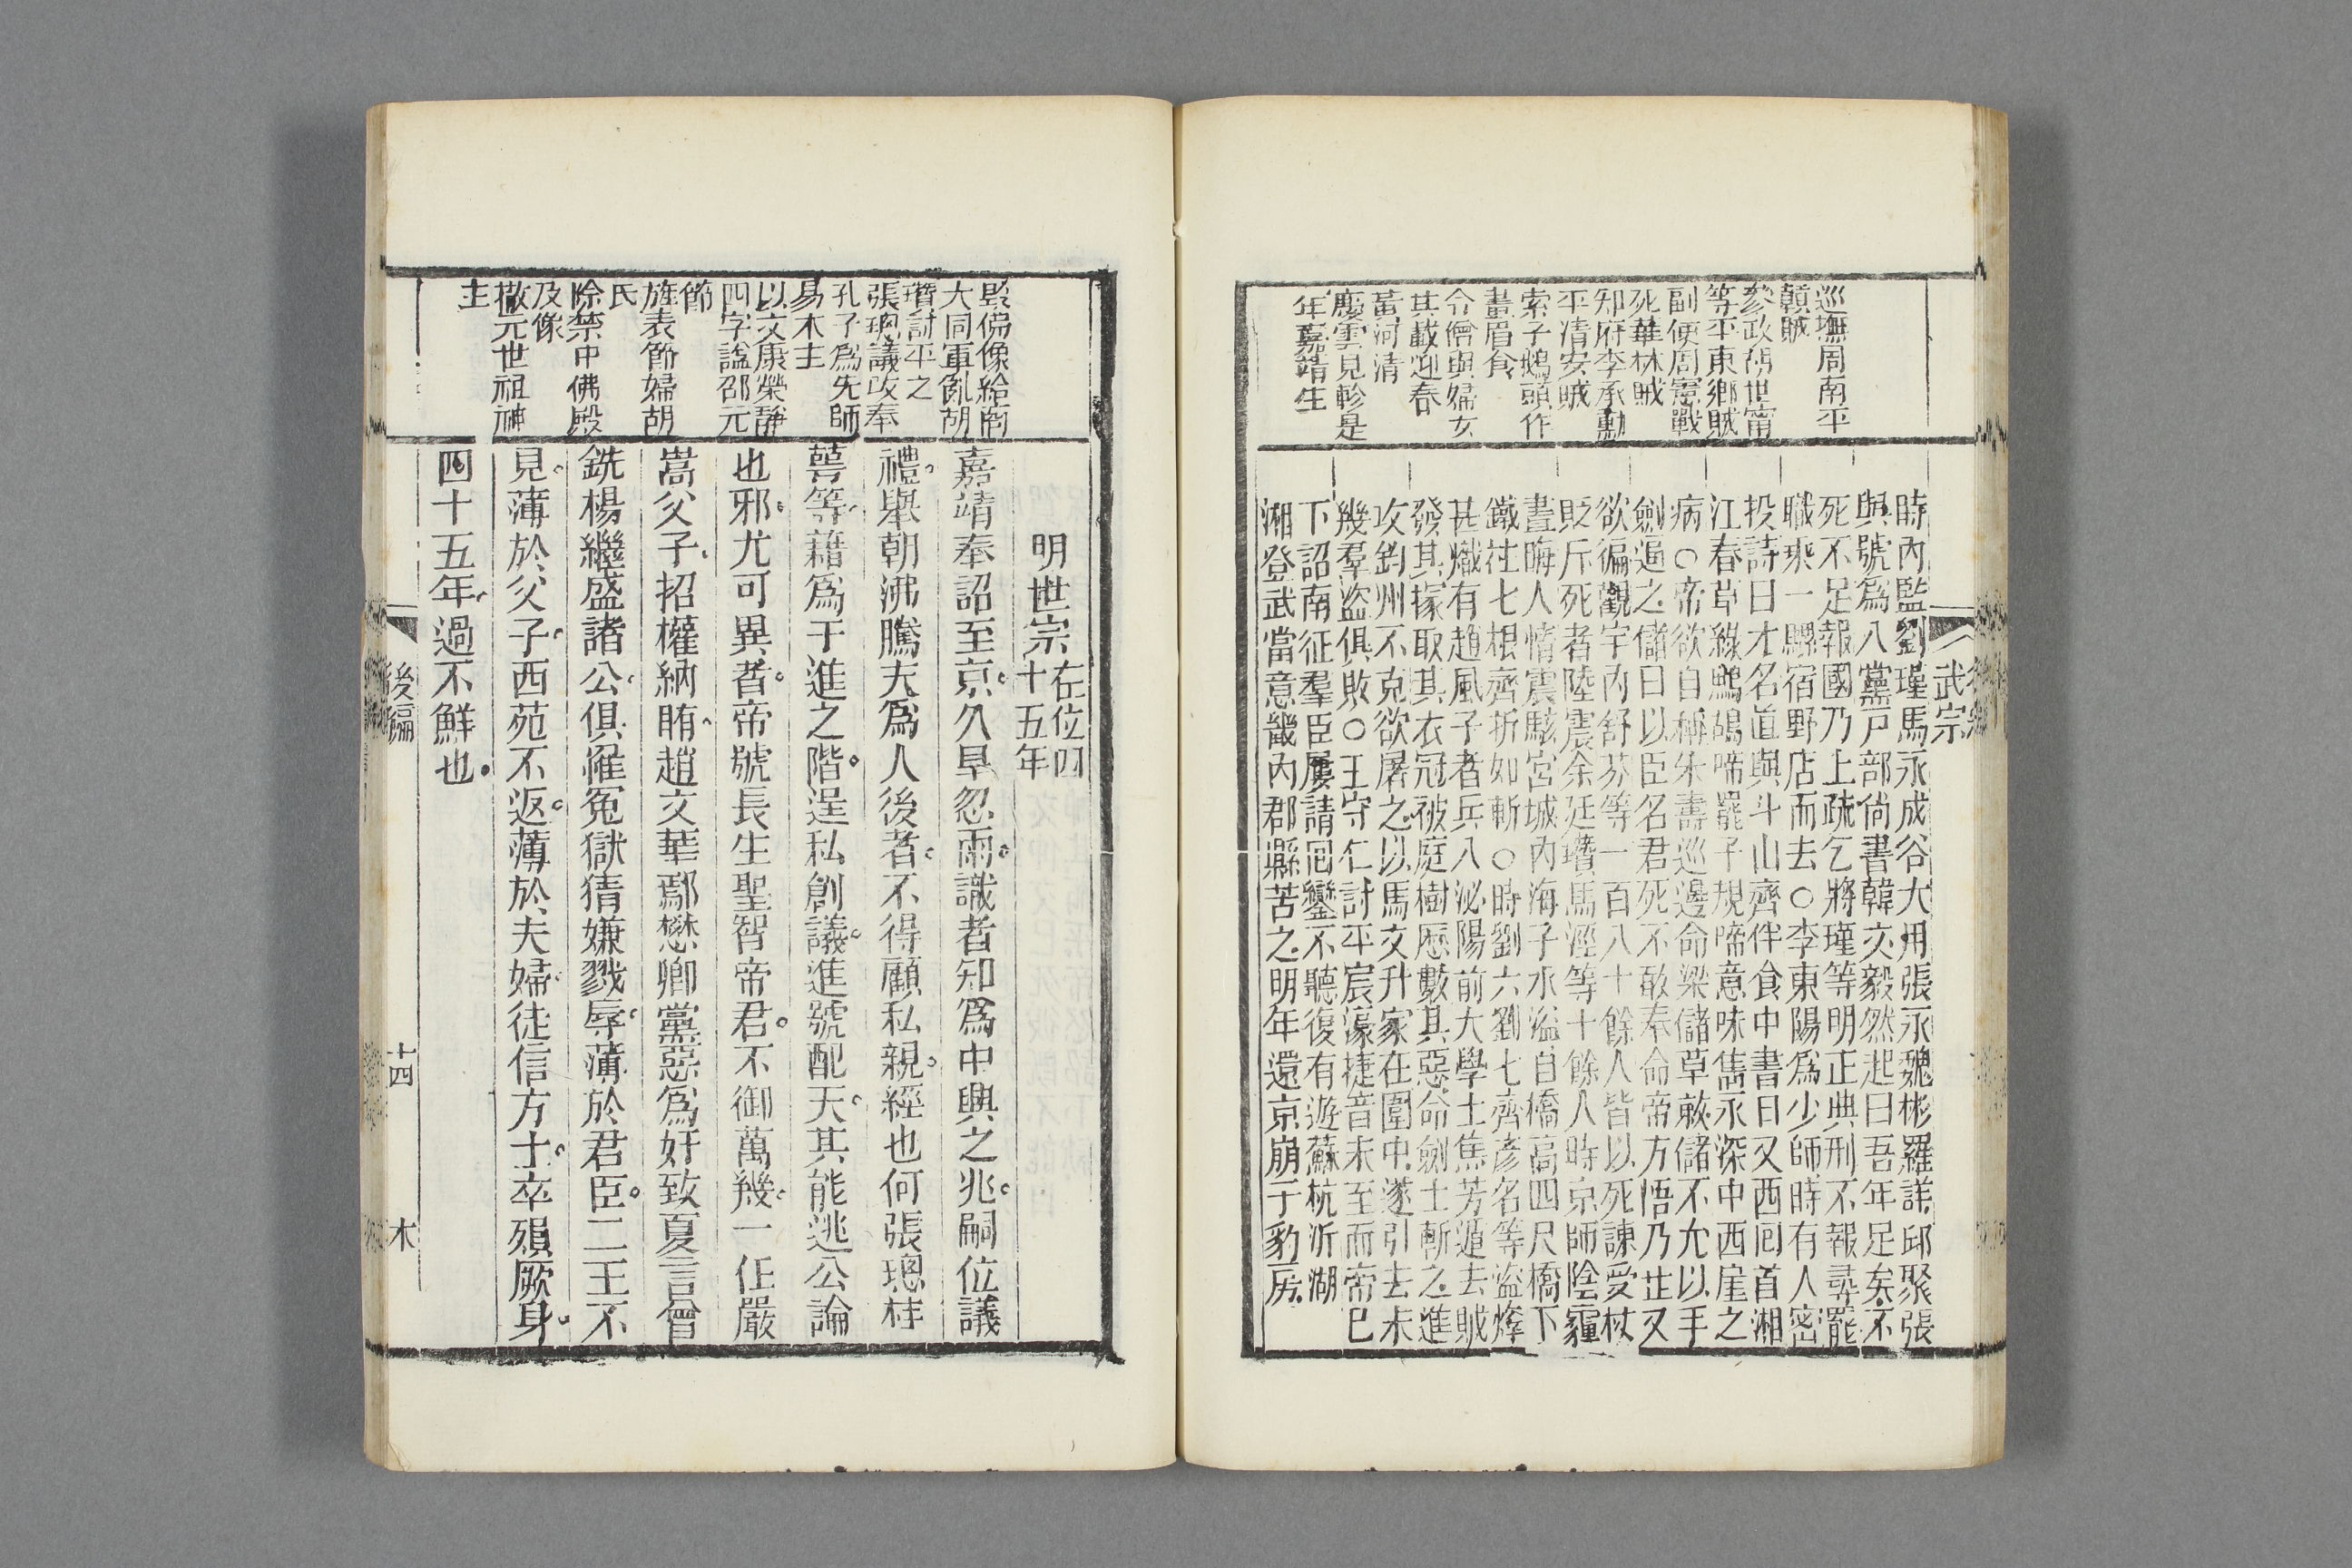 巡撫周南平
贛賊
參政胡世甯
等平東鄉賊
副使周憲戰
死華林賊
知府李承勳
平清安賊
索子鵝頭作
畫眉食
令僧與婦女
其載迎春
黃河清
慶雲見軫是
年嘉靖生
武宗
時內監劉瑾馬永成谷大用張永魏彬羅詳邱聚張
與號爲八黨戶部尚書韓文毅然起曰吾年足矣不
死不足報國乃上疏乞將瑾等明正典刑不報尋罷
職乘一騾宿野店而去○李東陽爲少師時有人密
投詩曰才名道與斗山齊伴食中書日又西回首湘
江春草綠鷓鴣啼罷子規啼意味雋永深中西崖之
病○帝欲自稱朱壽巡邊命梁儲草敕儲不允以手
劍逼之儲曰以臣名君死不敢奉命帝方悟乃止又
欲徧觀宇內舒芬等一百八十餘人皆以死諫受杖
貶斥死者陸震余廷瓚馬瀅等十餘人時京師陰霾
晝晦人情震駭宮城內海子水溢自橋高四尺橋下
鐵柱七根齊折如斬○時劉六劉七齊彥名等盜燁
甚熾有趙風子者兵八泌陽前大學士焦芳遁去賊
發其塚取其衣冠被庭樹歷數其惡命劍士斬之進
攻鈞州不克欲屠之以馬文升家在圍中遂引去未
幾羣盜俱敗○王守仁討平宸濠捷音未至而帝已
下詔南征羣臣屢請回鑾不聽復有遊蘇杭沂湖
湘登武當意畿內郡縣苦之明年還京崩于豹房
毀佛像給商
大同軍亂胡
瓚討平之
張璁議改奉
孔子爲先師
易木主
以文康榮靜
四字諡邵元
節
旌表節婦胡
氏
除禁中佛殿
及像
撤元世祖神
主
明世宗在位四十五年
嘉靖奉詔至京久旱忽雨識者知爲中興之兆嗣位議
禮舉朝沸騰夫爲人後者不得顧私親經也何張璁桂
萼等藉爲干進之階逞私創議進號配天其能逃公論
也邪尤可異者帝號長生聖智帝君不御萬幾一任嚴
嵩父子招權納賄趙文華鄢懋卿黨惡爲奸致夏言曾
銑楊繼盛諸公俱罹冤獄猜嫌戮辱薄於君臣二王不
見薄於父子西苑不返薄於夫婦徒信方士卒殞厥身
四十五年過不鮮也
後編
十四
木